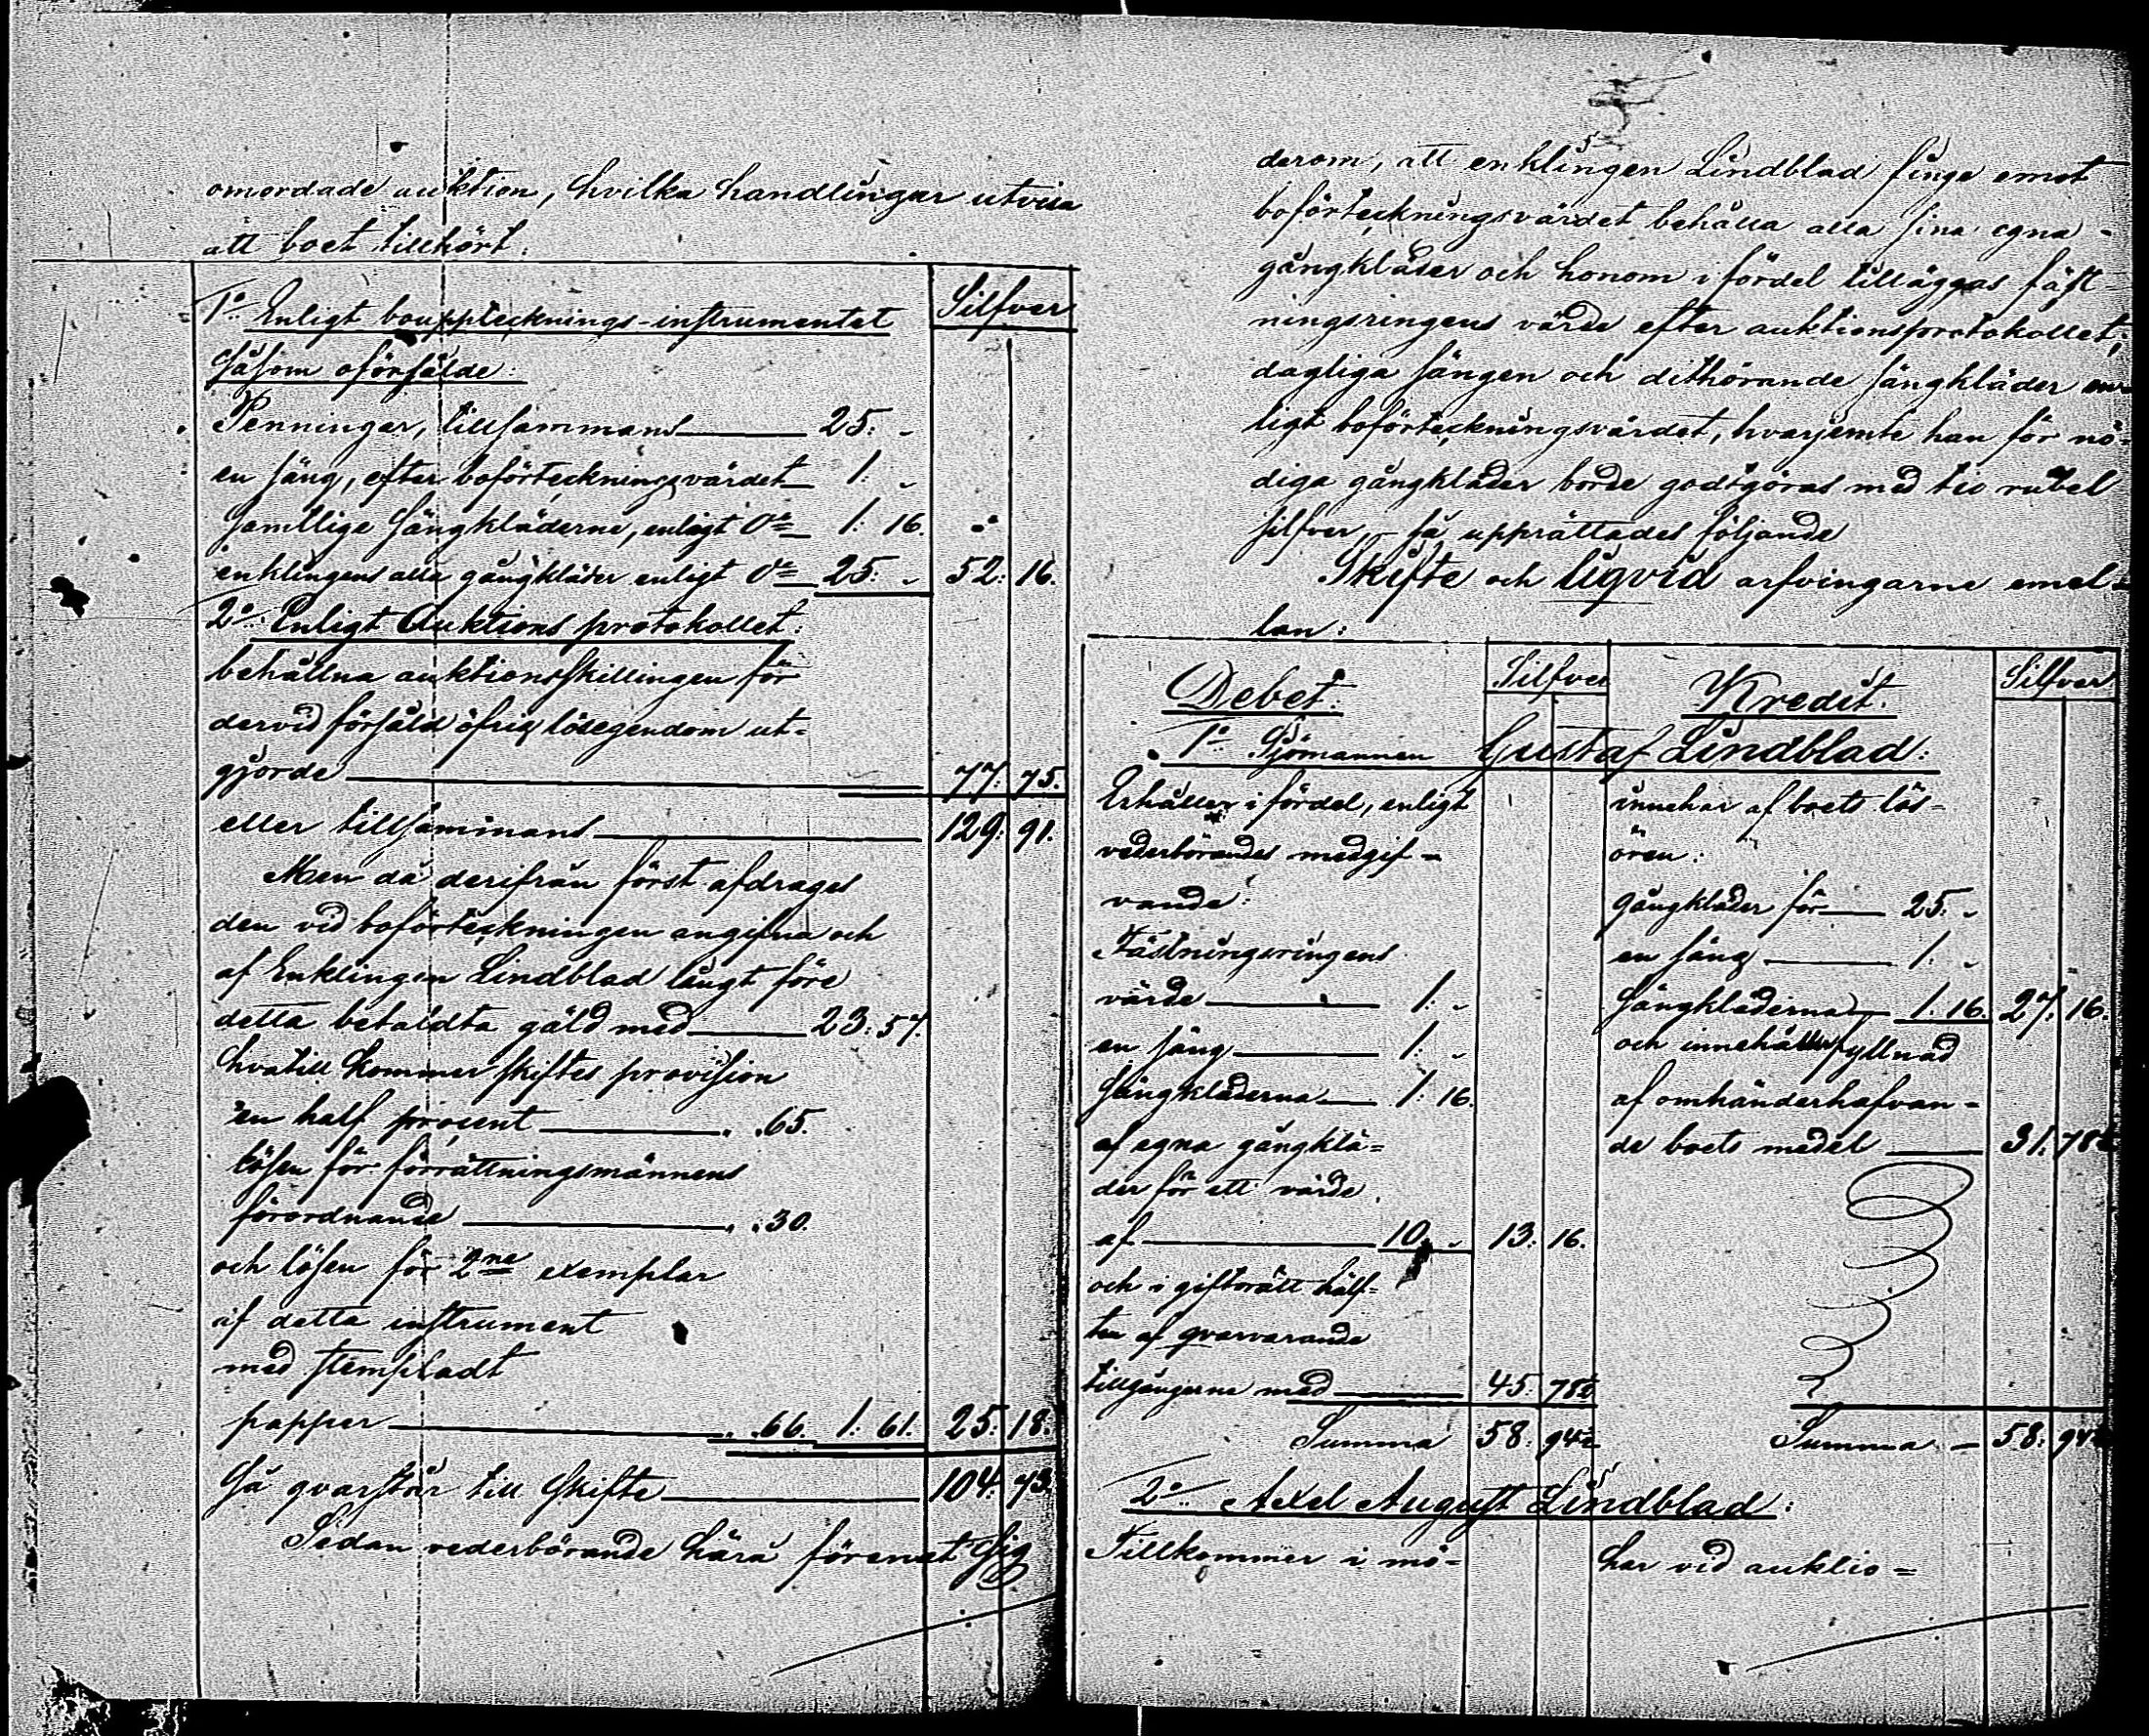 omordade auktion, hvilka handlingar utvisa
att boet tillhört:
Silfver
1º Enligt bouppteknings-instrumentet
Såsom oförsålde:
Penningar, tillsammans 25. „
en säng, efter boförteckningsvärdet 1. „
samtlige sängkläderne, enligt Dº 1. 16.
enklingens alla gångkläder enligt Dº 25. „ 52. 16.
2º Enligt Auktions protokollet:
behållna auktionsskillingen för
dervid försåld öfrig lösegendom ut-
gjorde 77. 75.
eller tillsammans 129. 91.
Men då derifrån först afdrages
den vid boförteckningen angifna och
af Enklingen Lindblad långt före
detta betaldta gäld med 23: 57.
hvatill kommer skiftes provision
en half procent „ 65.
lösen för förrättningsmännens
förordnande „ 30.
och lösen för 2ne exemplar
af detta instrument
med stempladt
papper „ 66. 1: 61. 25: 18.
Så qvarstår till skifte 104. 73.
Sedan vederbörande håra förenat sig
derom, att enklingen Lindblad finge emot
boförteckningsvärdet behålla alla sina egna
gångkläder och honom i fördel tilläggas fäst-
ningsringens värde efter auktionsprotokollet,
dagliga sängen och dithörande sängkläder en-
ligt boförteckningsvärdet, hvarjemte han för nö-
diga gångkläder borde godtgöras med tio rubel
silfver, – så upprättades följande
Skifte och liqvid arfvingarne emel-
lan:
Debet. Silfver Kredit. Silfver
1º Sjömannen Gustaf Lindblad:
Erhåller i fördel, enligt
vederbörandes medgif-
vande:
Fästningsringens
värde 1: „
en säng 1: „
sängkläderna 1: 16.
af egna gångklä-
der för ett värde
af 10. „ 13: 16.
och i giftorätt hälf-
ten af qvarvarande
tillgångerne med 45. 78½
Summa 58: 94½
innehar af boets lös-
ören:
gångkläder för 25. „
en säng 1. „
sängkläderna 1. 16. 27. 16.
och innehåller fyllnad
af omhänderhafvan-
de boets medel 31. 78½
Summa 58: 94½
2º Axel August Lindblad:
Tillkommer i mö-
har vid auktio-